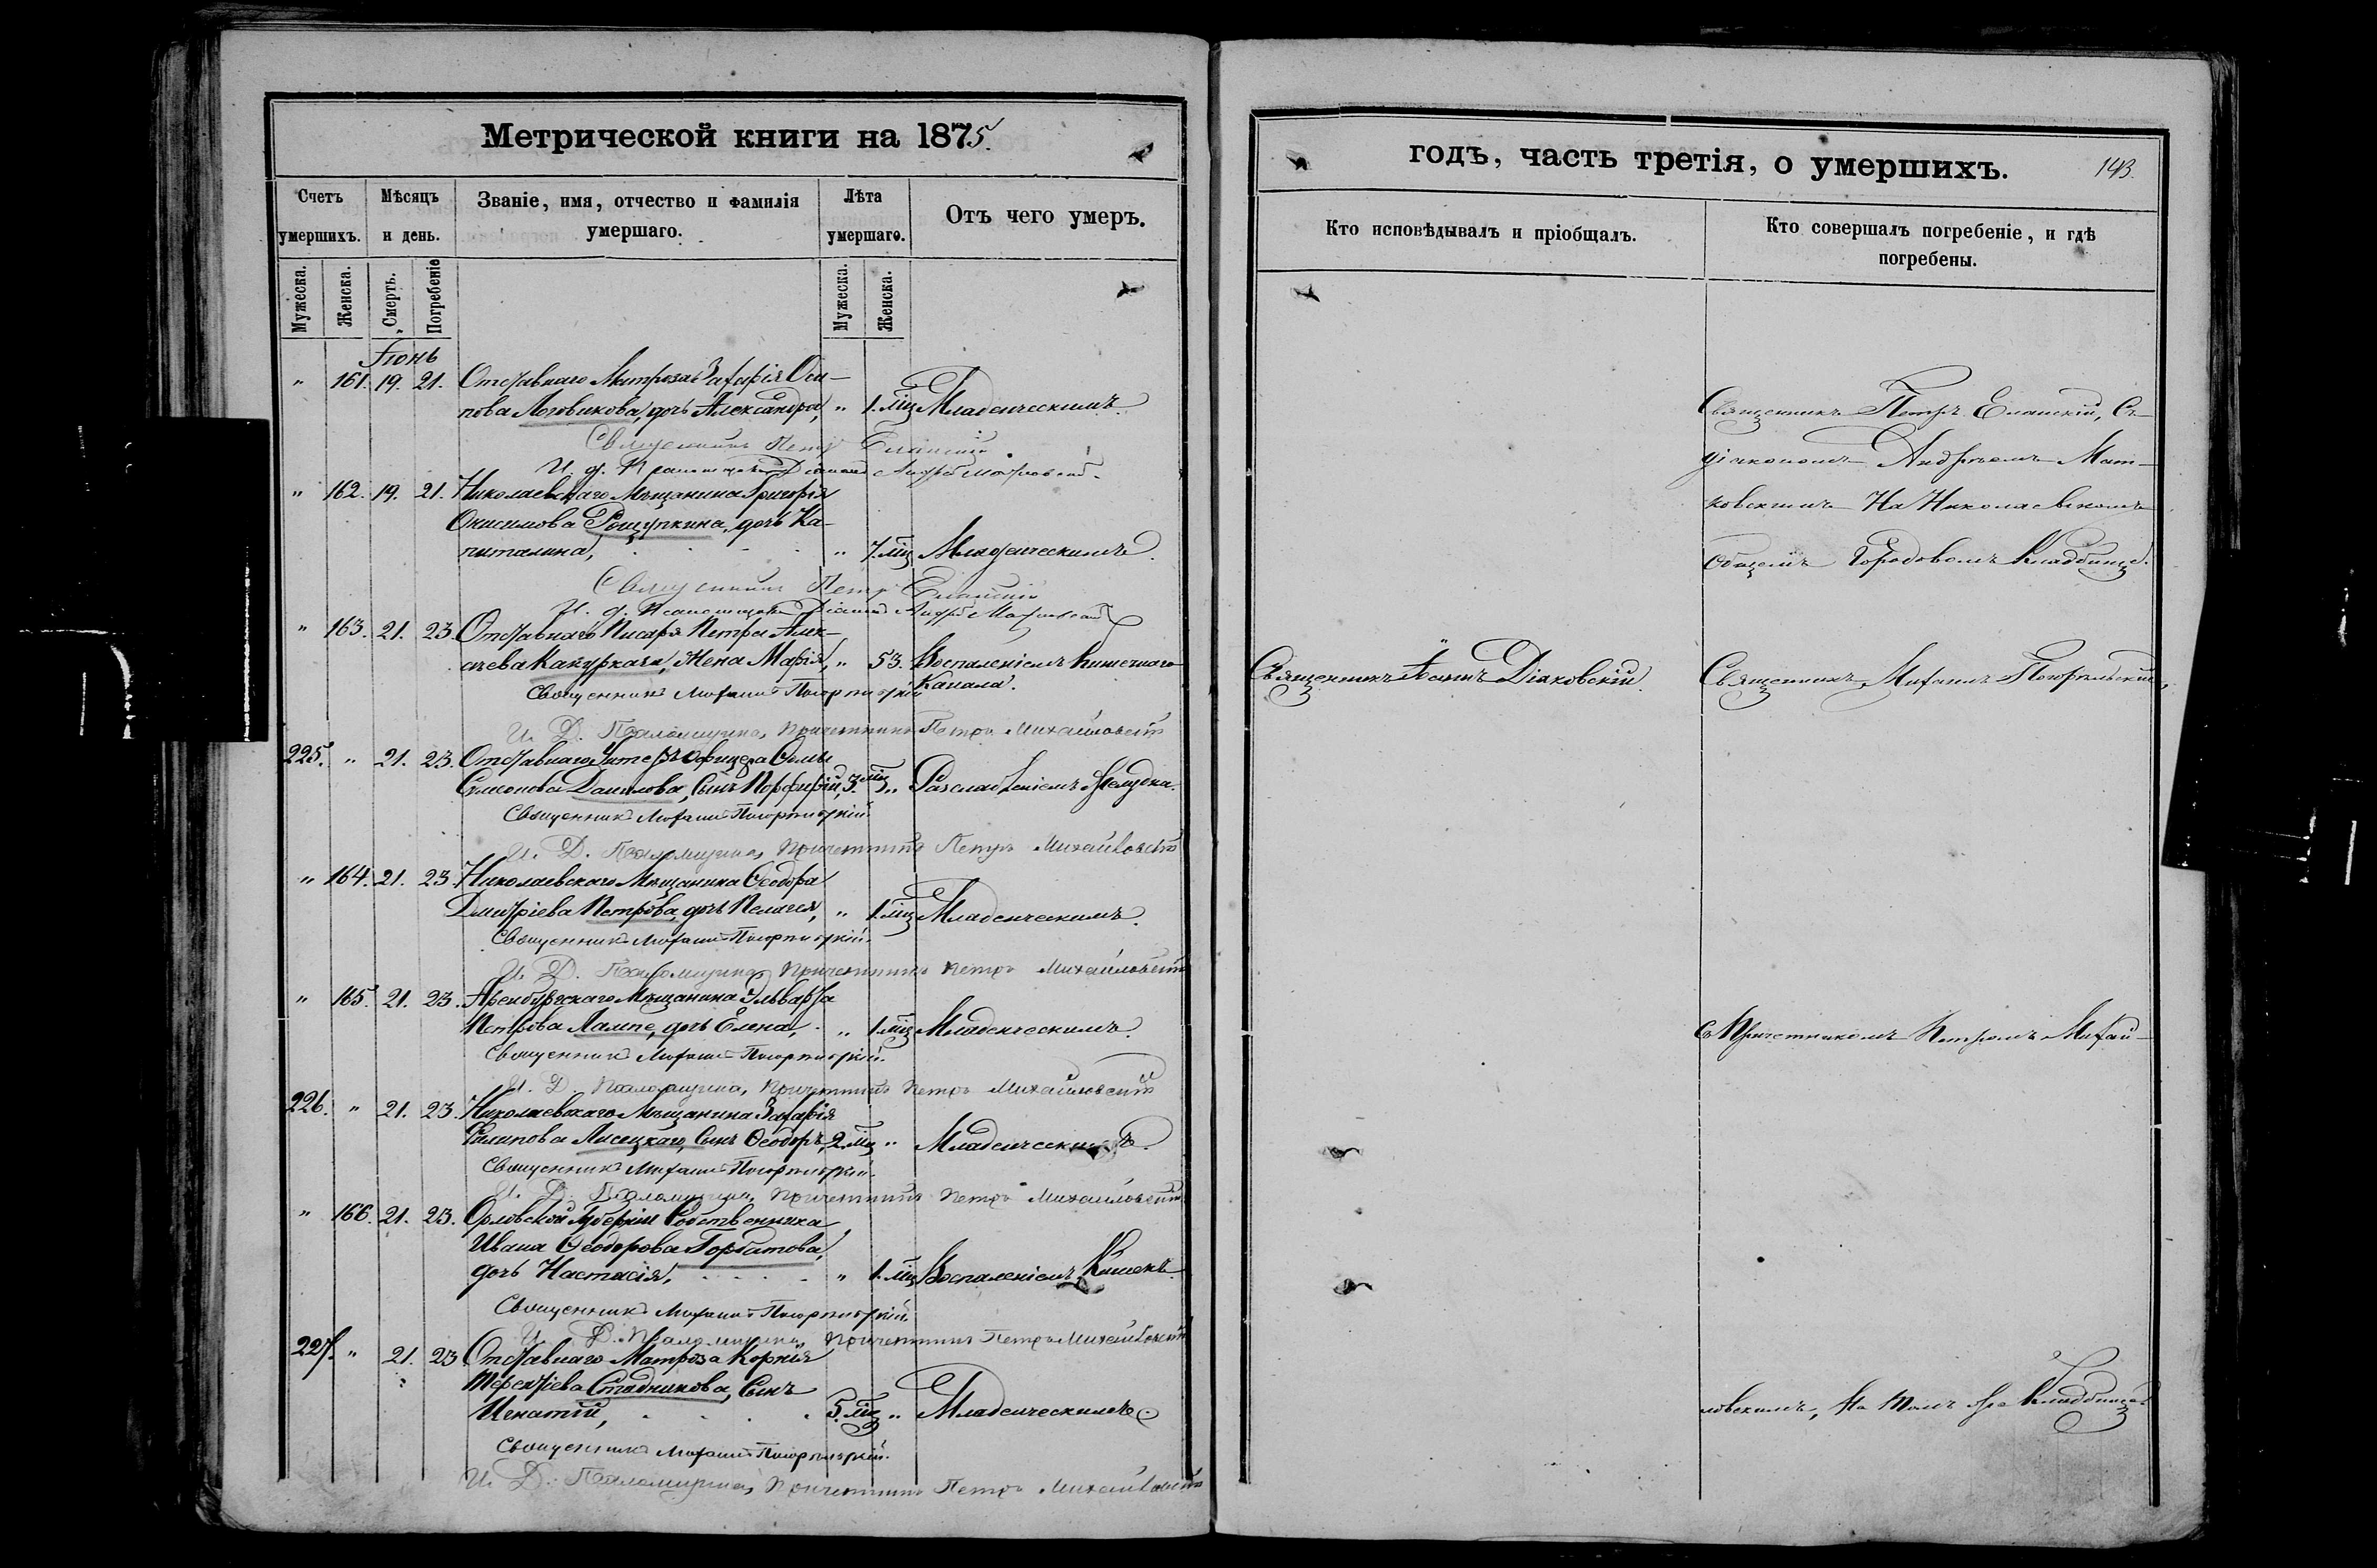 Метрической книги на 1875.
Счетъ умершихъ.
Мѣсяцъ и день.
Званіе, имя, отчество и фамилія умершаго.
Лѣта умершаго.
Отъ чего умеръ.
Мужеска. Женска. Смерть. Погребеніе Мужеска. Женска.
Іюнь
" 161. 19. 21. Отставнаго Матроза Захарія Оси-
пова Логовикова, дочь Александра, " 1. мц Младенческимъ.
Священникъ Петр Еланскій
И. д. Псаломщика Діаконъ Андрей Матковскій.
" 162. 19. 21. Николаевскаго Мѣщанина Григорія
Онисимова Рощупкина, дочь Ка-
питалина, " 7. мц Младенческимъ.
Священникъ Петр Еланскій
И. д. Псаломщика Діаконъ Андрей Матковскій
" 163. 21. 23. Отставнаго Писаря Петра Алек-
сѣева, Жена Марія, " 53. Воспаленіемъ Кишечнаго
Канала.
Священникъ Михаилъ Погорѣльскій
И. Д. Псаломщика, Причетникъ Петръ Михайловскій
225. " 21. 23. Отставнаго Унтеръ Офицера Фомы
Симонова Данилова, Сынъ Порфирій, 3. мц " Разслабленіемъ Желудка.
Священникъ Михаилъ Погорѣльскій
И. Д. Псаломщика, Причетникъ Петръ Михайловскій
" 164. 21. 23. Николаевскаго Мѣщанина Ѳеодора
Дмитріева Петрова, дочь Пелагея, " 1. мц Младенческимъ.
Священникъ Михаилъ Погорѣльскій.
И. Д. Псаломщика, Причетникъ Петръ Михайловскій
" 165. 21. 23. Аренбургскаго Мѣщанина Эдварда
Петрова Лампе, дочь Елена, " 1. мц Младенческимъ.
Священникъ Михаилъ Погорѣльскій.
И. Д. Псаломщика, Причетникъ Петръ Михайловскій
226. " 21. 23. Николаевскаго Мѣщанина Захарія
Филипова Лисецкаго, Сынъ Ѳеодоръ, 2. мц " Младенческимъ.
Священникъ Михаилъ Погорѣльскій.
И. Д. Псаломщика, Причетникъ Петръ Михайловскій
" 166. 21. 23. Орловской Губерніи Собственника
Ивана Ѳеодорова Горбатова,
дочь Настасія, " 1. мц Воспаленіемъ Кишекъ.
Священникъ Михаилъ Погорѣльскій
И. Д. Псаломщика, Причетникъ Петръ Михайловскій
227. " 21. 23. Отставнаго Матроза Корнія
Терентіева Стадникова, Сынъ
Игнатій, 5. мц " Младенческимъ.
Священникъ Михаилъ Погорѣльскій.
И. Д. Псаломщика, Причетникъ Петръ Михайловскій
годъ, часть третія, о умершихъ. 143.
Кто исповѣдывалъ и пріобщалъ.
Кто совершалъ погребеніе, и гдѣ погребены.
Священникъ Петръ Еланскій, Съ
діакономъ Андреемъ Мат-
ковскимъ На Николаевскомъ
Общемъ Городовомъ Кладбищѣ.
Священникъ Іоаннъ Діаковскій. Священникъ Михаилъ Погорѣльскій,
Съ Причетникомъ Петромъ Михай-
ловскимъ, На томъ же Кладбищѣ